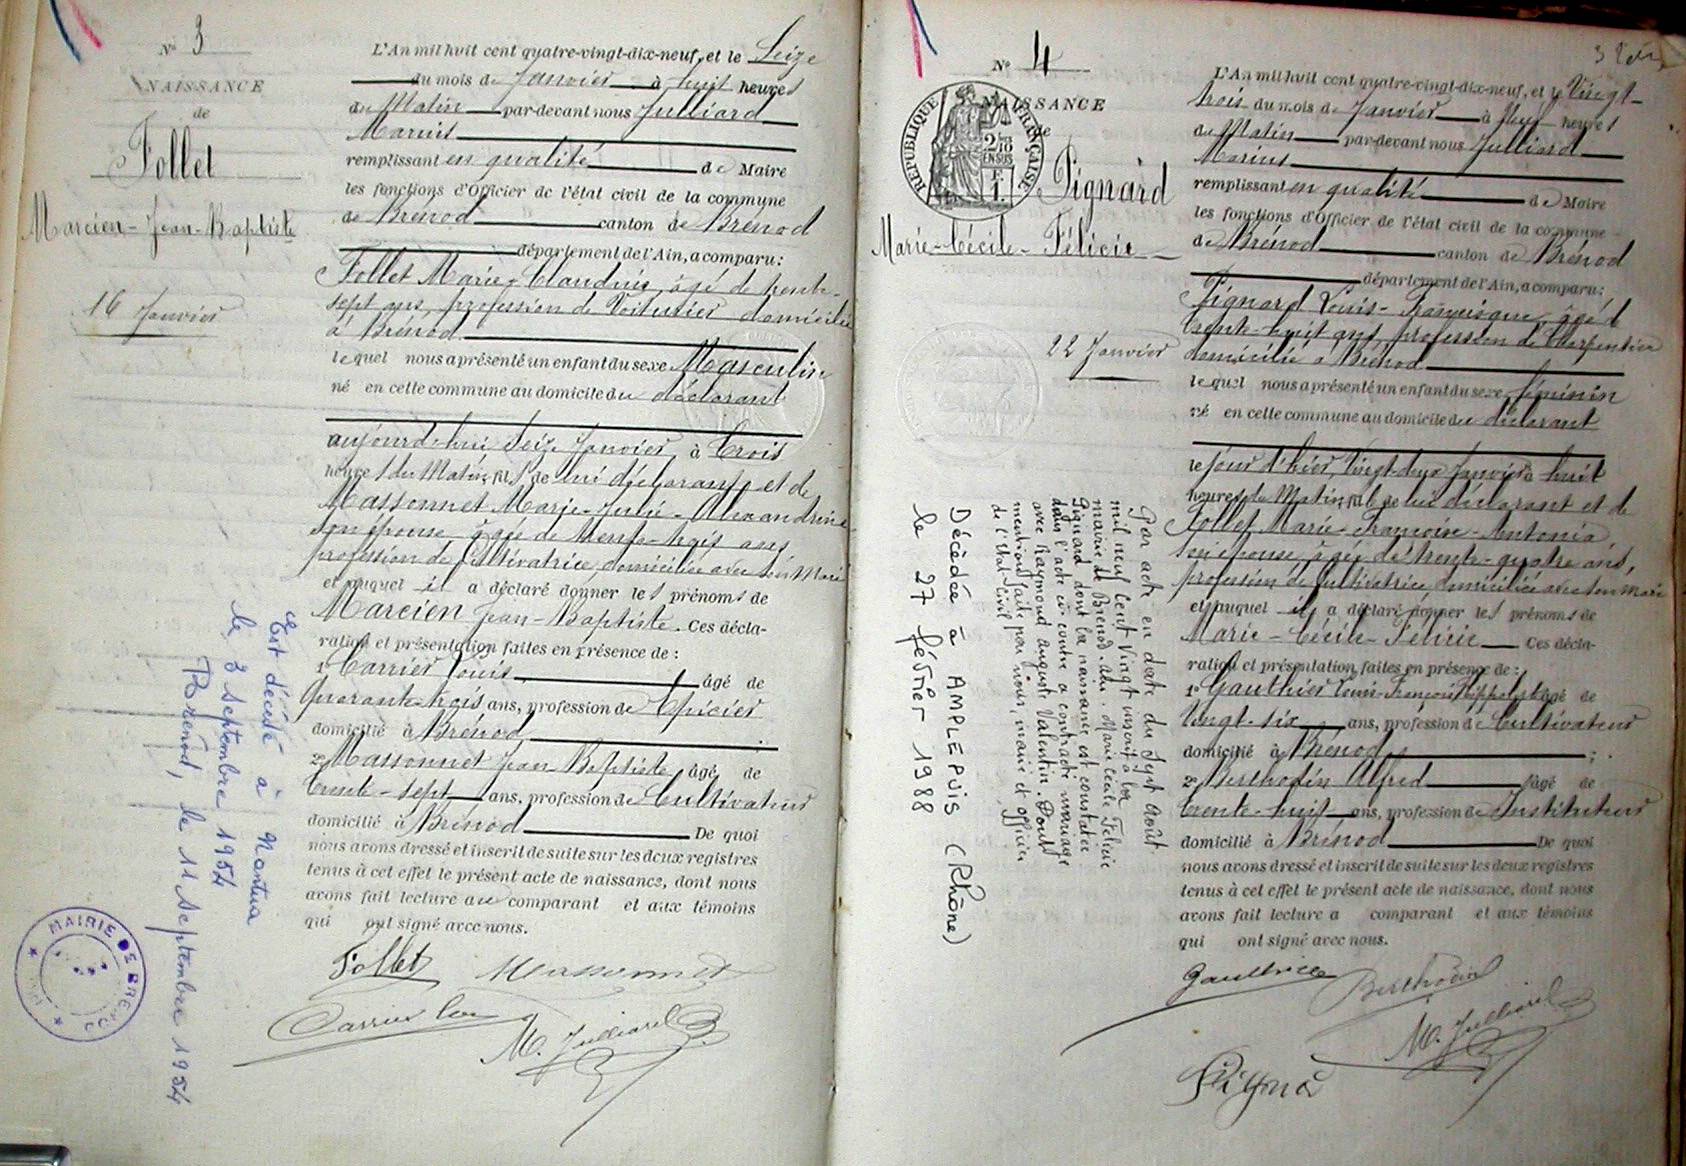 N° 3
NAISSANCE
de
Follet
Marcien-Jean-Baptiste
16 Janvier
L'An mil huit cent quatre-vingt-dix-neuf, et le Seize
du mois de Janvier à huit heures
du Matin par-devant nous Julliard
Marius
remplissant en qualité de Maire
les fonctions d'Officier de l'état civil de la commune
de Brénod canton de Brénod
département de l'Ain, a comparu :
Follet Marie-Claudius, âgé de trente-
sept ans, profession de Voiturier domicilié
à Brénod
lequel nous a présenté un enfant du sexe Masculin
né en cette commune au domicile du déclarant
aujourd'hui Seize Janvier, à trois
heures du Matin, fils de lui déclarant et de
Massonnet Marie-Julie-Alexandrine
son épouse, âgée de trente-trois ans,
profession de Cultivatrice, domiciliée avec son Mari
et auquel il a déclaré donner les prénoms de
Marcien Jean-Baptiste. Ces décla-
ration et présentation faites en présence de :
1° Carrier Louis âgé de
Quarante-trois ans, profession de Epicier
domicilié à Brénod
2° Massonnet Jean-Baptiste âgé de
trente-sept ans, profession de Cultivateur
domicilié à Brénod De quoi
nous avons dressé et inscrit de suite sur les deux registres
tenus à cet effet le présent acte de naissance, dont nous
avons fait lecture au comparant et aux témoins
qui ont signé avec nous.
Follet Massonnet
Carrier Louis
M. Julliard
Est décédé à Nantua
le 3 septembre 1954
Brénod, le 11 septembre 1954
MAIRIE DE BRENOD
N° 4
NAISSANCE
de
RÉPUBLIQUE FRANÇAISE
2/10
EN SUS
F.
1.
Pignard
Marie-Cécile-Félicie
22 Janvier
L'An mil huit cent quatre-vingt-dix-neuf, et le Vingt-
trois du mois de Janvier à Neuf heures
du Matin par-devant nous Julliard
Marius
remplissant en qualité de Maire
les fonctions d'Officier de l'état civil de la commune
de Brénod canton de Brénod
département de l'Ain, a comparu :
Pignard Louis-Francisque, âgé de
trente-huit ans, profession de Charpentier
domicilié à Brénod
lequel nous a présenté un enfant du sexe féminin
né en cette commune au domicile du déclarant
le jour d'hier Vingt-deux Janvier à huit
heures du Matin, fille de lui déclarant et de
Follet Marie-Françoise-Antonia,
son épouse, âgée de trente-quatre ans,
profession de Cultivatrice, domiciliée avec son mari
et auquel il a déclaré donner les prénoms de
Marie-Cécile-Félicie Ces décla-
ration et présentation faites en présence de :
1° Gauthier Louis-François-Hippolyte âgé de
Vingt-six ans, profession de Cultivateur
domicilié à Brénod ;
2° Berthodin Alfred âgé de
trente-huit ans, profession de Instituteur
domicilié à Brénod De quoi
nous avons dressé et inscrit de suite sur les deux registres
tenus à cet effet le présent acte de naissance, dont nous
avons fait lecture a comparant et aux témoins
qui ont signé avec nous.
Gauthier Berthodin
M. Julliard
Par acte en date du Sept Août
mil neuf cent vingt inscrit à la
mairie de Brénod. Melle. Marie Cécile Félicie
Pignard dont la naissance est constatée
dans l'acte ci-contre a contracté mariage
avec Raymond Auguste Valentin.
mention faite par nous, maire et officier
de l'Etat-Civil
Décédée à AMPLEPUIS (Rhône)
le 27 février 1988